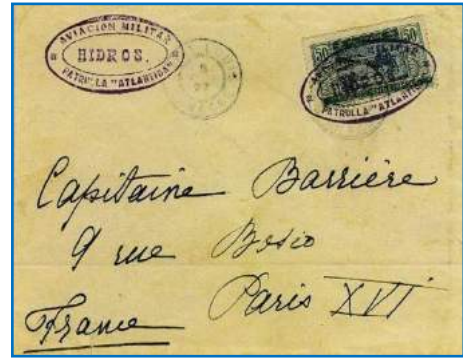 AVIACION MILITAR
HIDROS.
PATRULLA "ATLANTIDA"
50
50
AVIACION MILITAR
PATRULLA "ATLANTIDA"
Capitaine Barrière
9 rue Bosio
Paris XVI
France